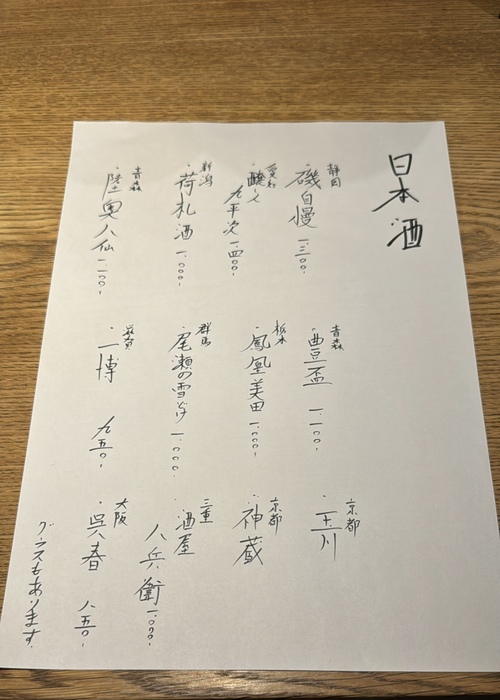 日本酒
静岡
・磯自慢 一、三〇〇-
愛知
・醸し人
九平次 一、四〇〇-
新潟
・荷札酒 一、〇〇〇-
青森
・陸奥八仙 一、一〇〇-
青森
・豊盃 一、一〇〇
栃木
・鳳凰美田 一、〇〇〇-
群馬
・尾瀬の雪どけ 一、〇〇〇
滋賀
・一博 九五〇-
京都
・玉川
京都
・神蔵
三重
・酒屋
八兵衛 一、〇〇〇-
大阪
・呉春 八五〇-
グラスもあります。